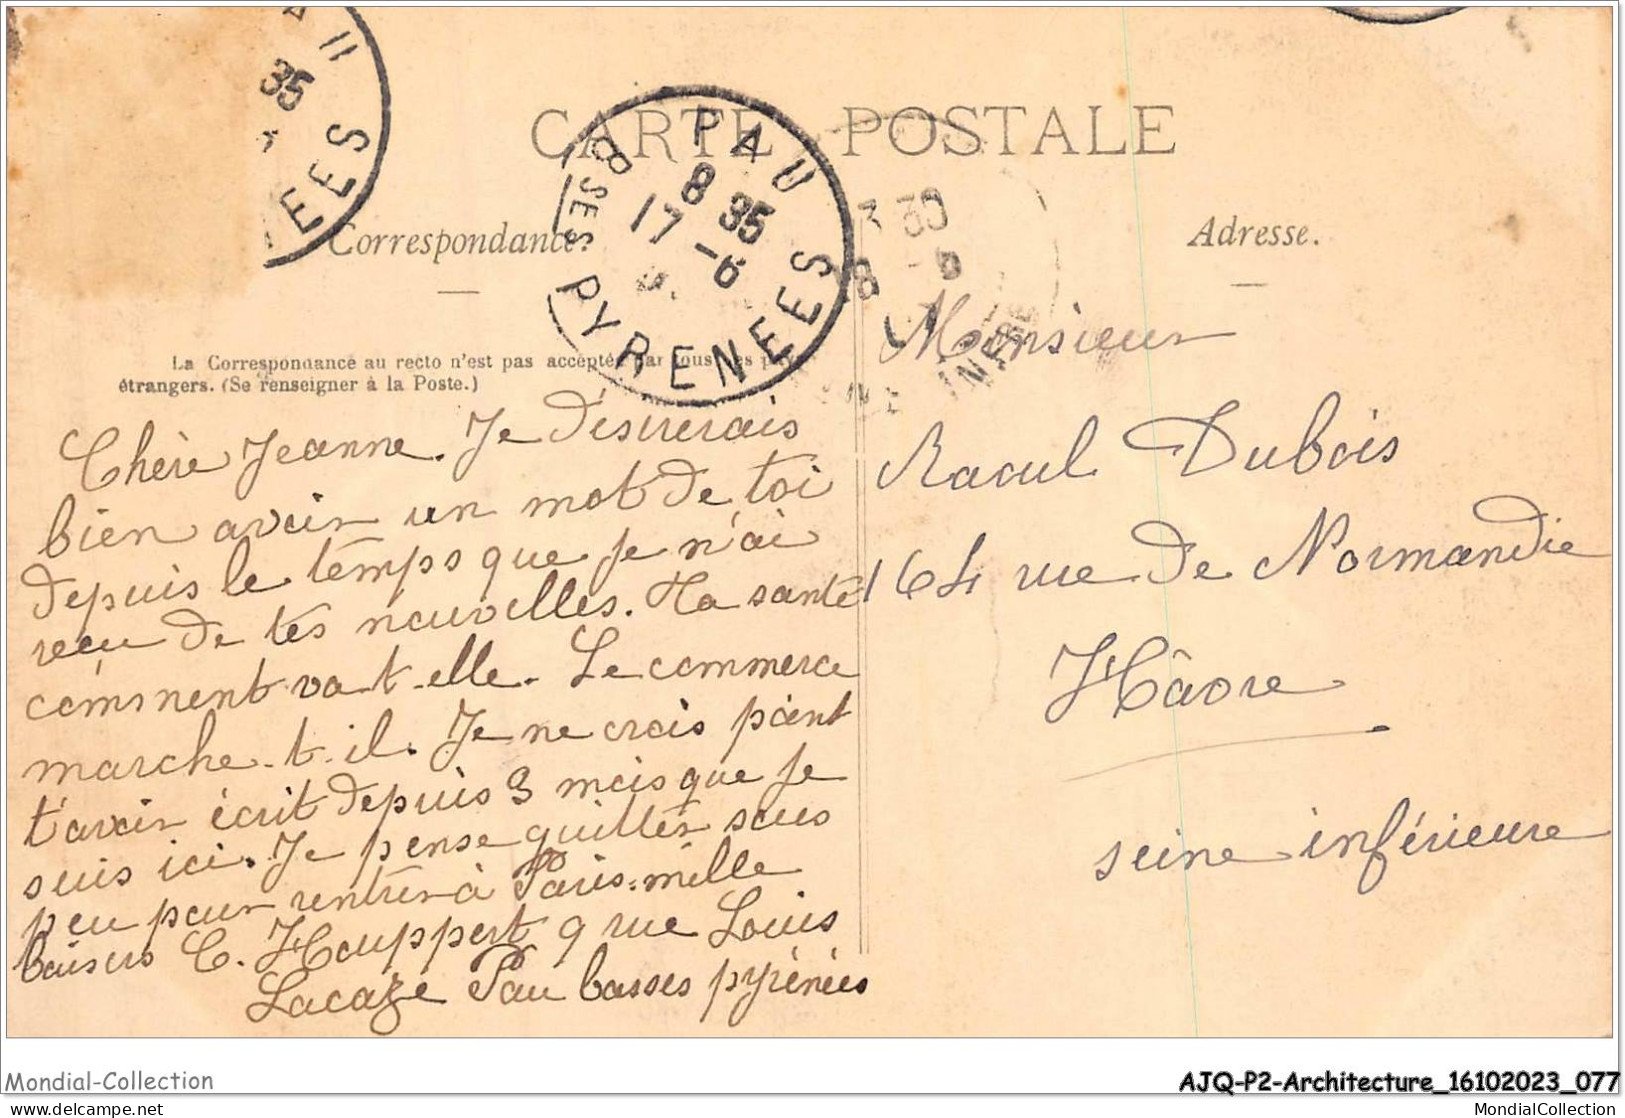 CARTE POSTALE
Correspondance.
Adresse.
La Correspondance au recto n'est pas acceptée par tous les pays
étrangers. (Se renseigner à la Poste.)
PAU
8 35
17 -6
BSES PYRENEES
35
EES
3 30
8 -6
Chère Jeanne. Je Désirerais
bien avoir un mot de toi
depuis le temps que je n'ai
reçu de tes nouvelles. Ta santé
comment va-t-elle. Le commerce
marche-t-il. Je ne crois point
t'avoir écrit depuis 3 mois que je
suis ici. Je pense quitter sous
peu pour rentrer à Paris. mille
baisers C. Houppert 9 rue Louis
Lacaze Pau basses pyrénées
Monsieur
Raoul Dubois
164 rue de Normandie
Hâvre
seine inférieure
Mondial-Collection
AJQ-P2-Architecture_16102023_077
delcampe.net
MondialCollection